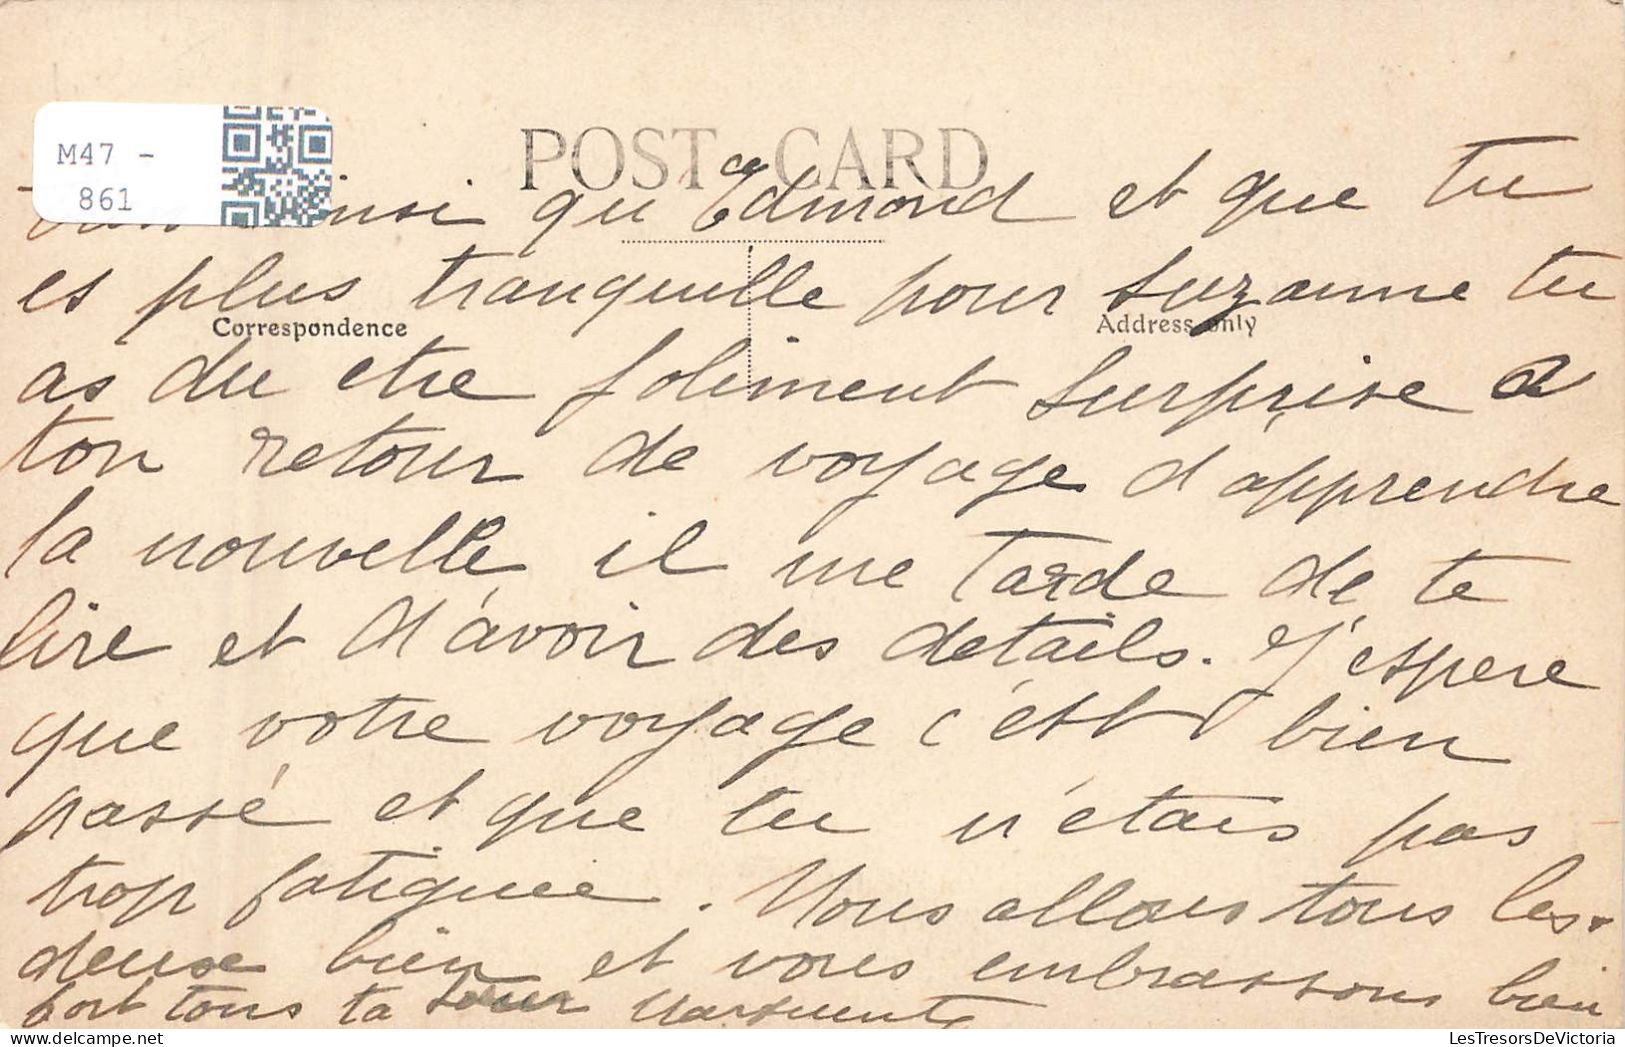 POST CARD
M47 -
861
ainsi qu'Edmond et que tu
es plus tranquille pour Suzanne tu
Correspondence
Address only
as du etre joliment surprise a
ton retour de voyage d'apprendre
la nouvelle il me tarde de te
lire et d'avoir des details. J'espere
que votre voyage c'est bien
passé et que tu n'étais pas
trop fatiguée. Nous allons tous les
deux bien et vous embrassons bien
fort tous ta sœur
LesTresorsDeVictoria